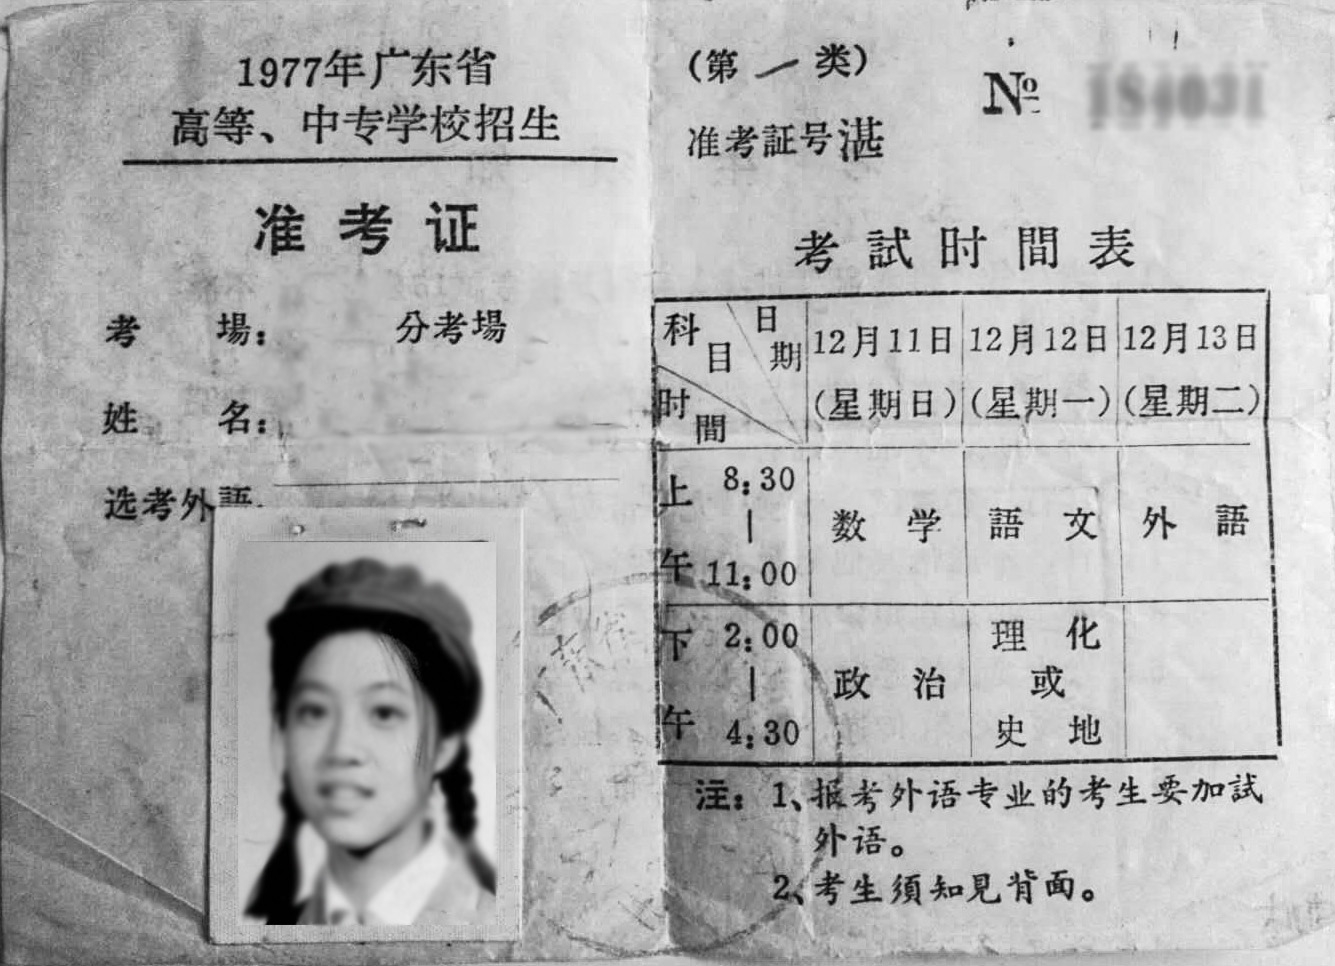 1977年广东省
高等、中专学校招生
准考证
考場：　分考場
姓名：
选考外語
(第一类)
№
准考証号湛
考試时間表
科目 日期 时間 12月11日 12月12日 12月13日
(星期日) (星期一) (星期二)
上午 8:30 | 11:00 数学 語文 外語
下午 2:00 | 4:30 政治 理化或史地
注：1、报考外语专业的考生要加試
外语。
2、考生須知見背面。